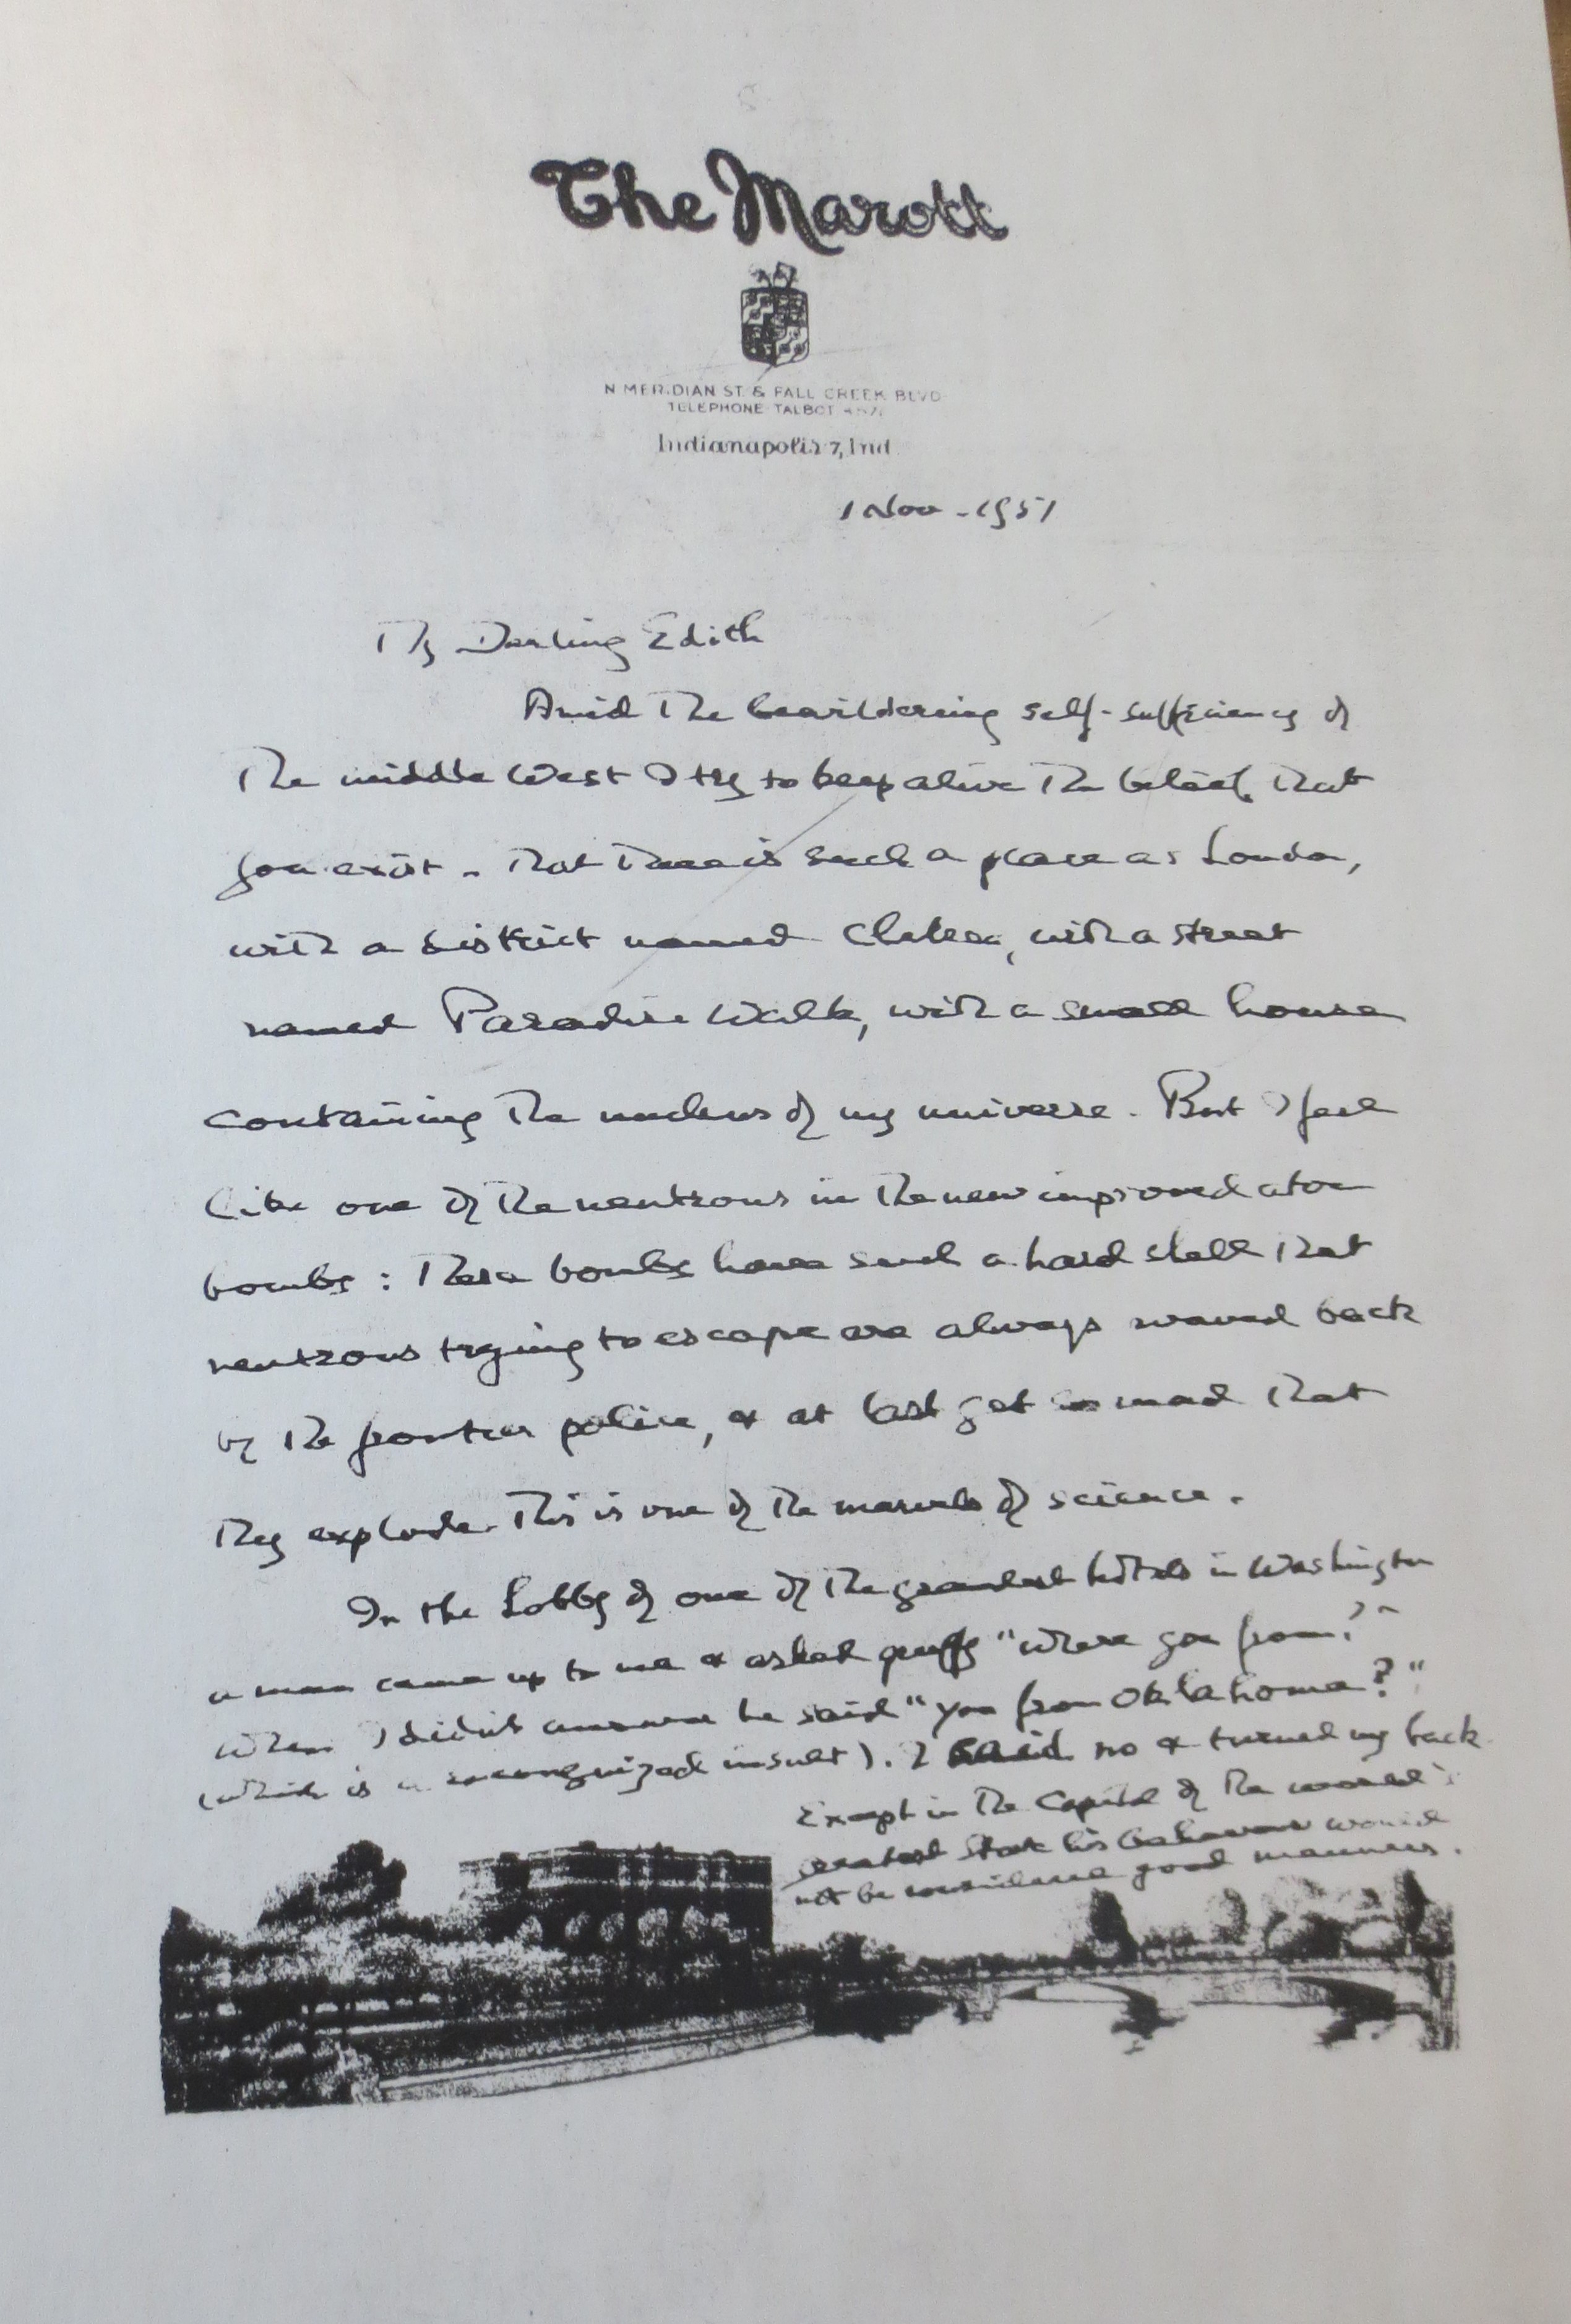 The Marott
N MERIDIAN ST. & FALL CREEK BLVD
TELEPHONE TALBOT
Indianapolis 7, Ind
1 Nov - 1951
My Darling Edith
Amid the bewildering self-sufficiency of
the middle West I try to keep alive the belief that
you exist - that there is such a place as London,
with a district named Chelsea, with a street
named Paradise Walk, with a small house
containing the nucleus of my universe. But I feel
like one of the neutrons in the new improved atom
bombs: these bombs have such a hard shell that
neutrons trying to escape are always waved back
by the frontier police, & at last get so mad that
they explode. This is one of the marvels of science.
In the Lobby of one of the grandest hotels in Washington
a man came up to me & asked gruffly "Where you from?"
When I didn't answer he said "you from Oklahoma?"
(which is a recognized insult). I said no & turned my back
Except in the Capital of the world's
greatest State his behaviour would
not be considered good manners.